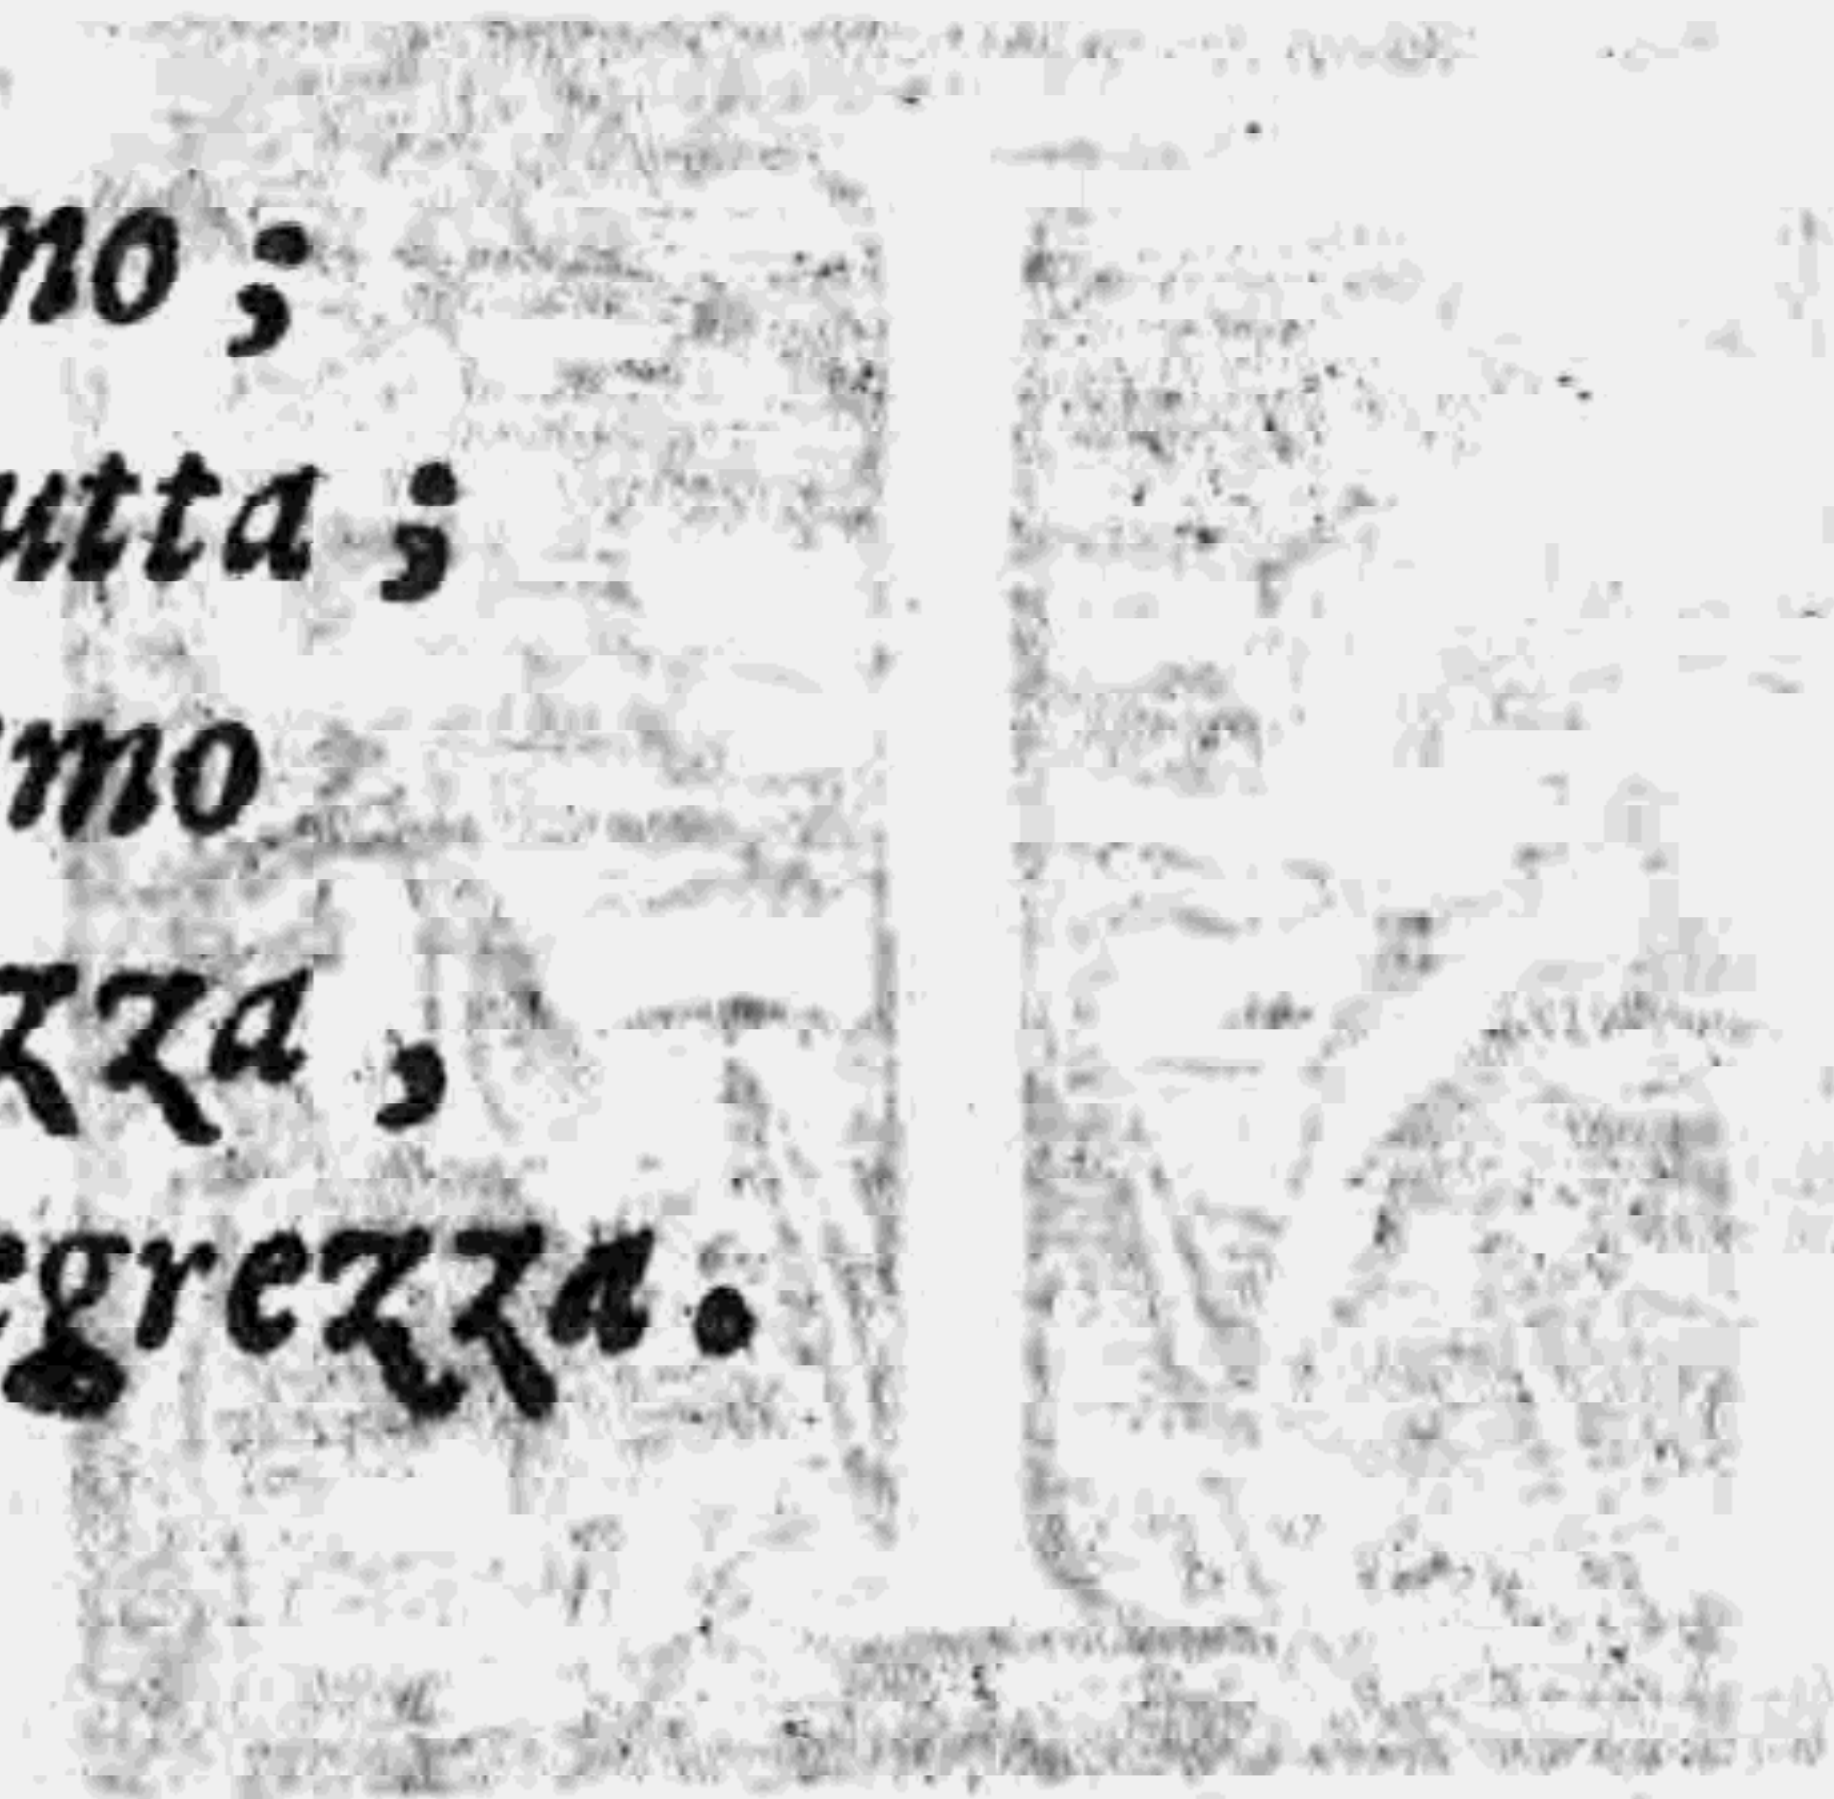 no ;
utta ;
mo
zza ,
egrezza.